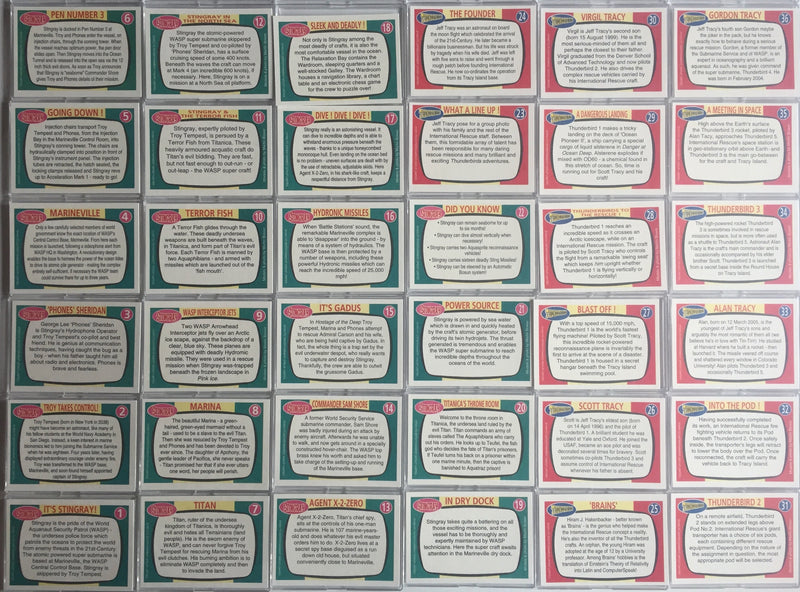 PEN NUMBER 3
6
Stingray is docked in Pen Number 3 at
Marineville. Troy and Phones enter the vessel,
on injection chairs, through the conning tower.
When the vessel reaches optimum power, the pen door
slides open. Then Stingray moves into the Ocean
Tunnel and is released into the open sea via the 12
inch thick exit doors. As soon as Troy announces
that Stingray is 'sealaunch' Commander Shore gives
Troy and Phones details of their mission.
STINGRAY IN
THE NORTH SEA
12
Stingray the atomic-powered
WASP super submarine skippered
by Troy Tempest and co-piloted by
'Phones' Sheridan, has a surface
cruising speed of some 400 knots.
Beneath the waves the craft can
move at Mark 4 (an incredible 600
knots), if necessary! Here, Stingray is on a
mission at a North Sea oil platform.
SLEEK AND DEADLY!
18
Not only is Stingray among the
most deadly of crafts, it is also the
most comfortable vessel in the ocean.
The Relaxation Bay contains the
Wardroom, sleeping quarters and a
well-stocked Galley. The Wardroom
houses a navigation library, a chart
table and an electronic chess game
for the crew to puzzle over!
THE FOUNDER
24
Jeff Tracy was an astronaut on board
the moon flight which celebrated the arrival
of the 21st-Century. He later became a
billionaire businessman. But his life was struck
by tragedy when his wife died. Jeff was left
with five sons to raise and went through a
rough patch before founding International
Rescue. He now co-ordinates the operation
from its Tracy Island base.
VIRGIL TRACY
30
Virgil is Jeff Tracy's second son
(born 15 August 1999). He is the
most serious-minded of them all and
perhaps the closest to their father.
Virgil graduated from the Denver School
of Advanced Technology and now pilots
Thunderbird 2. He also drives the
complex rescue vehicles carried by
his International Rescue craft.
GORDON TRACY
36
Jeff Tracy's fourth son Gordon may be
the joker in the pack, but he knows
when to behave during a serious
rescue mission. Gordon, a former member of
the Submarine Service and of WASP, is an
expert in oceanography and a brilliant
aquanaut. As such, he was given command
of the super submarine, Thunderbird 4. He
was born in February 2004.
GOING DOWN !
5
Injection chairs transport Troy
Tempest and Phones, from the Injection
Bay in the Marineville Control Room, into
Stingray's conning tower. The chairs are
hydraulically clamped into position in front of
Stingray's instrument panel. The injection
tubes are retracted, the hatch sealed, the
locking clamps released and Stingray revs
up to Acceleration Mark 1 - ready to go!
STINGRAY &
THE TERROR FISH
11
Stingray, expertly piloted by
Troy Tempest, is pursued by a
Terror Fish from Titanica. These
heavily armoured aquatic craft do
Titan's evil bidding. They are fast,
but not fast enough to out-run - or
out-leap - the WASP super craft!
DIVE ! DIVE ! DIVE !
17
Stingray really is an astonishing vessel. It
can dive to incredible depths and is able to
withstand enormous pressure beneath the
waves
Agent X-2-Zero, in his shark-like craft, keeps a
respectful distance from Stingray.
WHAT A LINE UP !
23
Jeff Tracy pose for a group photo
with his family and the rest of the
International Rescue staff. Between
them, this formidable array of talent has
been responsible for many daring
rescue missions and many brilliant and
exciting Thunderbirds adventures.
A DANGEROUS LANDING
29
Thunderbird 1 makes a tricky
landing on the deck of 'Ocean
Pioneer II', a ship carrying a special
cargo of liquid alsterene in Danger at
Ocean Deep. Alsterene explodes if
mixed with OD60 - a chemical found in
this stretch of ocean. So, time is
running out for Scott Tracy and his craft!
A MEETING IN SPACE
35
High above the Earth's surface
the Thunderbird 3 rocket, piloted by
Alan Tracy, approaches Thunderbird 5.
International Rescue's space station is in
geo-stationary orbit above Earth - and
Thunderbird 3 is the main go-between
for the craft and Tracy Island.
MARINEVILLE
4
Only a few carefully selected members of world
government know the exact location of WASP's
Central Control Base, Marineville. From here each
mission is launched, following a videophone alert from
WSP HQ in Washington. A revolutionary design
enables the base to harness the power of the ocean tides
to drive its atomic pile generator - making the complex
entirely self-sufficient; if necessary the WASP team
could survive there for up to three years.
TERROR FISH
10
A Terror Fish glides through the
water. These deadly underwater
weapons are built beneath the waves,
in Titanica, and form part of Titan's evil
force. Each Terror Fish is manned by
two Aquaphibians - and armed with
missiles which are launched out of the
'fish mouth'.
HYDRONIC MISSILES
16
When 'Battle Stations' sound, the
remarkable Marineville complex is
able to 'disappear' into the ground - by
means of a system of hydraulics. The
WASP base is then protected by a
number of weapons, including these
powerful Hydronic missiles which can
reach the incredible speed of 25,000
mph!
DID YOU KNOW
22
- Stingray can remain seaborne for up
to six months!
- Stingray can dive almost vertically if
necessary!
- Stingray carries two Aquasprite reconnaissance
vehicles!
- Stingray carries sixteen deadly Sting Missiles!
- Stingray can be steered by an Automatic
Bosun system!
THUNDERBIRDS TO
THE RESCUE !
28
Thunderbird 1 reaches an
incredible speed as it crosses an
Arctic icescape, while on an
International Rescue mission. The craft
is piloted by Scott Tracy who controls
the flight from a remarkable 'swing seat'
which keeps him upright whether
Thunderbird 1 is flying vertically or
horizontally!
THUNDERBIRD 3
34
The high-powered rocket Thunderbird
3 is sometimes involved in rescue
missions in space, but is more often used
as a shuttle to Thunderbird 5. Astronaut Alan
Tracy is the craft's main commander and is
occasionally accompanied by his elder
brother Scott. Thunderbird 3 is launched
from a secret base inside the Round House
on Tracy Island.
PHONES' SHERIDAN
3
George Lee 'Phones' Sheridan is
Stingray's Hydrophone Operator
and Troy Tempest's co-pilot and best
friend. He is genius at communication
techniques, having caught the bug as a
boy - when his father taught him all
about radio and electronics. Phones is
brave and fearless.
WASP INTERCEPTOR JETS
9
Two WASP Arrowhead
Interceptor jets fly over an Arctic
ice scape, against the backdrop of a
clear, blue sky. These planes are
equipped with deadly Hydronic
missiles. They were used in a rescue
mission when Stingray was trapped
beneath the frozen landscape in
Pink Ice.
IT'S GADUS
15
In Hostages of the Deep Troy
Tempest, Marina and Phones attempt
to rescue Admiral Carson and his wife,
who are being held captive by Gadus. In
fact, the whole thing is a trap set by the
evil underwater despot, who really wants
to capture and destroy Stingray.
Thankfully, the crew are able to outwit
the gruesome Gadus.
POWER SOURCE
21
Stingray is powered by sea water
which is drawn in and quickly heated
by the craft's atomic generator, before
driving its twin hydrojets. The thrust
generated is tremendous and enables
the WASP super submarine to reach
incredible depths throughout the
oceans of the world.
BLAST OFF !
27
With a top speed of 15,000 mph,
Thunderbird 1 is the world's fastest
flying machine! Piloted by Scott Tracy,
this incredible rocket-powered
reconnaissance plane is invariably the
first to arrive at the scene of a disaster.
Thunderbird 1 is housed in a secret
hangar beneath the Tracy Island
swimming pool.
ALAN TRACY
33
Alan, born on 12 March 2005, is the
youngest of Jeff Tracy's sons and
arguably the most romantic of them all
he's in love with Tin-Tin. He studied
at Harvard where he built a rocket - then
launched it! The missile veered off course
and shattered every window in Colorado
University! Alan pilots Thunderbird 3 and
occasionally Thunderbird 5.
TROY TAKES CONTROL!
2
Troy Tempest (born in New York in 2038)
might have become an astronaut, like many of
his fellow students at the World Navy Academy in
San Diego. Instead, a keen interest in marine
economies led to him joining the Submarine Service
when he was eighteen. Four years later, having
displayed extraordinary courage under enemy fire,
Troy was transferred to the WASP base,
Marineville, and soon found himself appointed
captain of Stingray.
MARINA
8
The beautiful Marina - a green-
haired, green-eyed mermaid without a
tail - used to be a slave to the evil Titan.
Then she was rescued by Troy Tempest
and Phones and has been devoted to Troy
ever since. The daughter of Aphony, the
gentle leader of Pacifica, she never speaks
- Titan promised her that if she ever utters
one word, her people will perish.
COMMANDER SAM SHORE
14
A former World Security Service
submarine commander, Sam Shore
was badly injured during an attack by
enemy aircraft. Afterwards he was unable
to walk, and now gets around in a specially
constructed hover-chair. The WASP top
brass knew his worth and asked him to
take charge of the setting-up and running
of the Marineville base.
TITANICA'S THRONE ROOM
20
Welcome to the throne room in
Titanica, the undersea land ruled by the
evil Titan. Titan commands an army of
slaves called the Aquaphibians who carry
out his orders. He looks up to Teufel, the fish
god who decides the fate of Titan's prisoners.
If Teufel turns his back on a prisoner within
one marine minute, then the captive is
banished to Aquatraz prison!
SCOTT TRACY
26
Scott is Jeff Tracy's eldest son (born
on 14 April 1995) and the pilot of
Thunderbird 1. A brilliant student, he was
educated at Yale and Oxford. He joined the
USAF, became an ace pilot and was
decorated several times for bravery. Scott
sometimes co-pilots Thunderbird 3 and
assume control of International Rescue
INTO THE POD !
32
Having successfully completed
its work, an International Rescue fire
fighting vehicle returns to its Pod
beneath Thunderbird 2. Once safely
inside, the transporter's legs will retract
to lower the body over the Pod. Once
reconnected, the craft will carry the
vehicle back to Tracy Island.
IT'S STINGRAY!
1
Stingray is the pride of the World
Aquanaut Security Patrol (WASP) -
the undersea police force which
patrols the oceans to protect the world
from enemy threats in the 21st Century.
The atomic powered super submarine is
based at Marineville, the WASP
Central Control Base. Stingray is
skippered by Troy Tempest.
TITAN
7
Titan, ruler of the undersea
Kingdom of Titanica, is thoroughly
evil and hates all Terraineans (land
people). He is the sworn enemy of
WASP, and can never forgive Troy
Tempest for rescuing Marina from his
evil clutches. His burning ambition is to
eliminate WASP completely and then
to invade the land.
AGENT X-2-ZERO
13
Agent X-2-Zero, Titan's chief spy,
sits at the controls of his one-man
submarine. He is 107 marine-years-
old and does whatever his evil master
orders him to do. X-2-Zero lives at a
secret spy base disguised as a run
down old house, but situated
conveniently close to Marineville.
IN DRY DOCK
19
Stingray takes quite a battering on all
those exciting missions, and the
vessel has to be thoroughly and
expertly maintained by WASP
technicians. Here the super craft awaits
attention in the Marineville dry dock.
'BRAINS'
25
Hiram J. Hakenbacker - better known
as 'Brains' - is the genius who helped make
the International Rescue concept a reality.
He's also the inventor of all the Thunderbird
crafts. An orphan, the young Hiram was
adopted at the age of 12 by a University
professor. Among Brains' hobbies is the
translation of Einstein's Theory of Relativity
into Latin and ComputerSpeak!
THUNDERBIRD 2
31
On a remote airfield, Thunderbird 2
stands on extended legs above
Pod No.2. International Rescue's giant
transporter has a choice of six pods,
each containing different rescue
equipment. Depending on the nature of
the assignment in question, the most
appropriate pod will be selected.